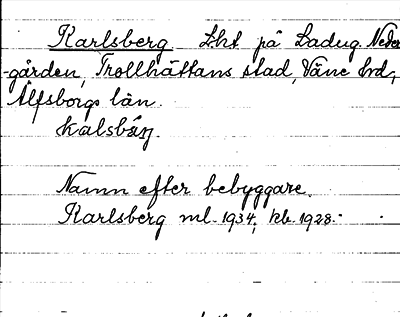 Karlsberg Lht på Ladug. Neder-
gården, Trollhättans stad, Väne hd,
Älfsborgs län.
Namn efter bebyggare.
Karlsberg ml. 1934, kb. 1928.